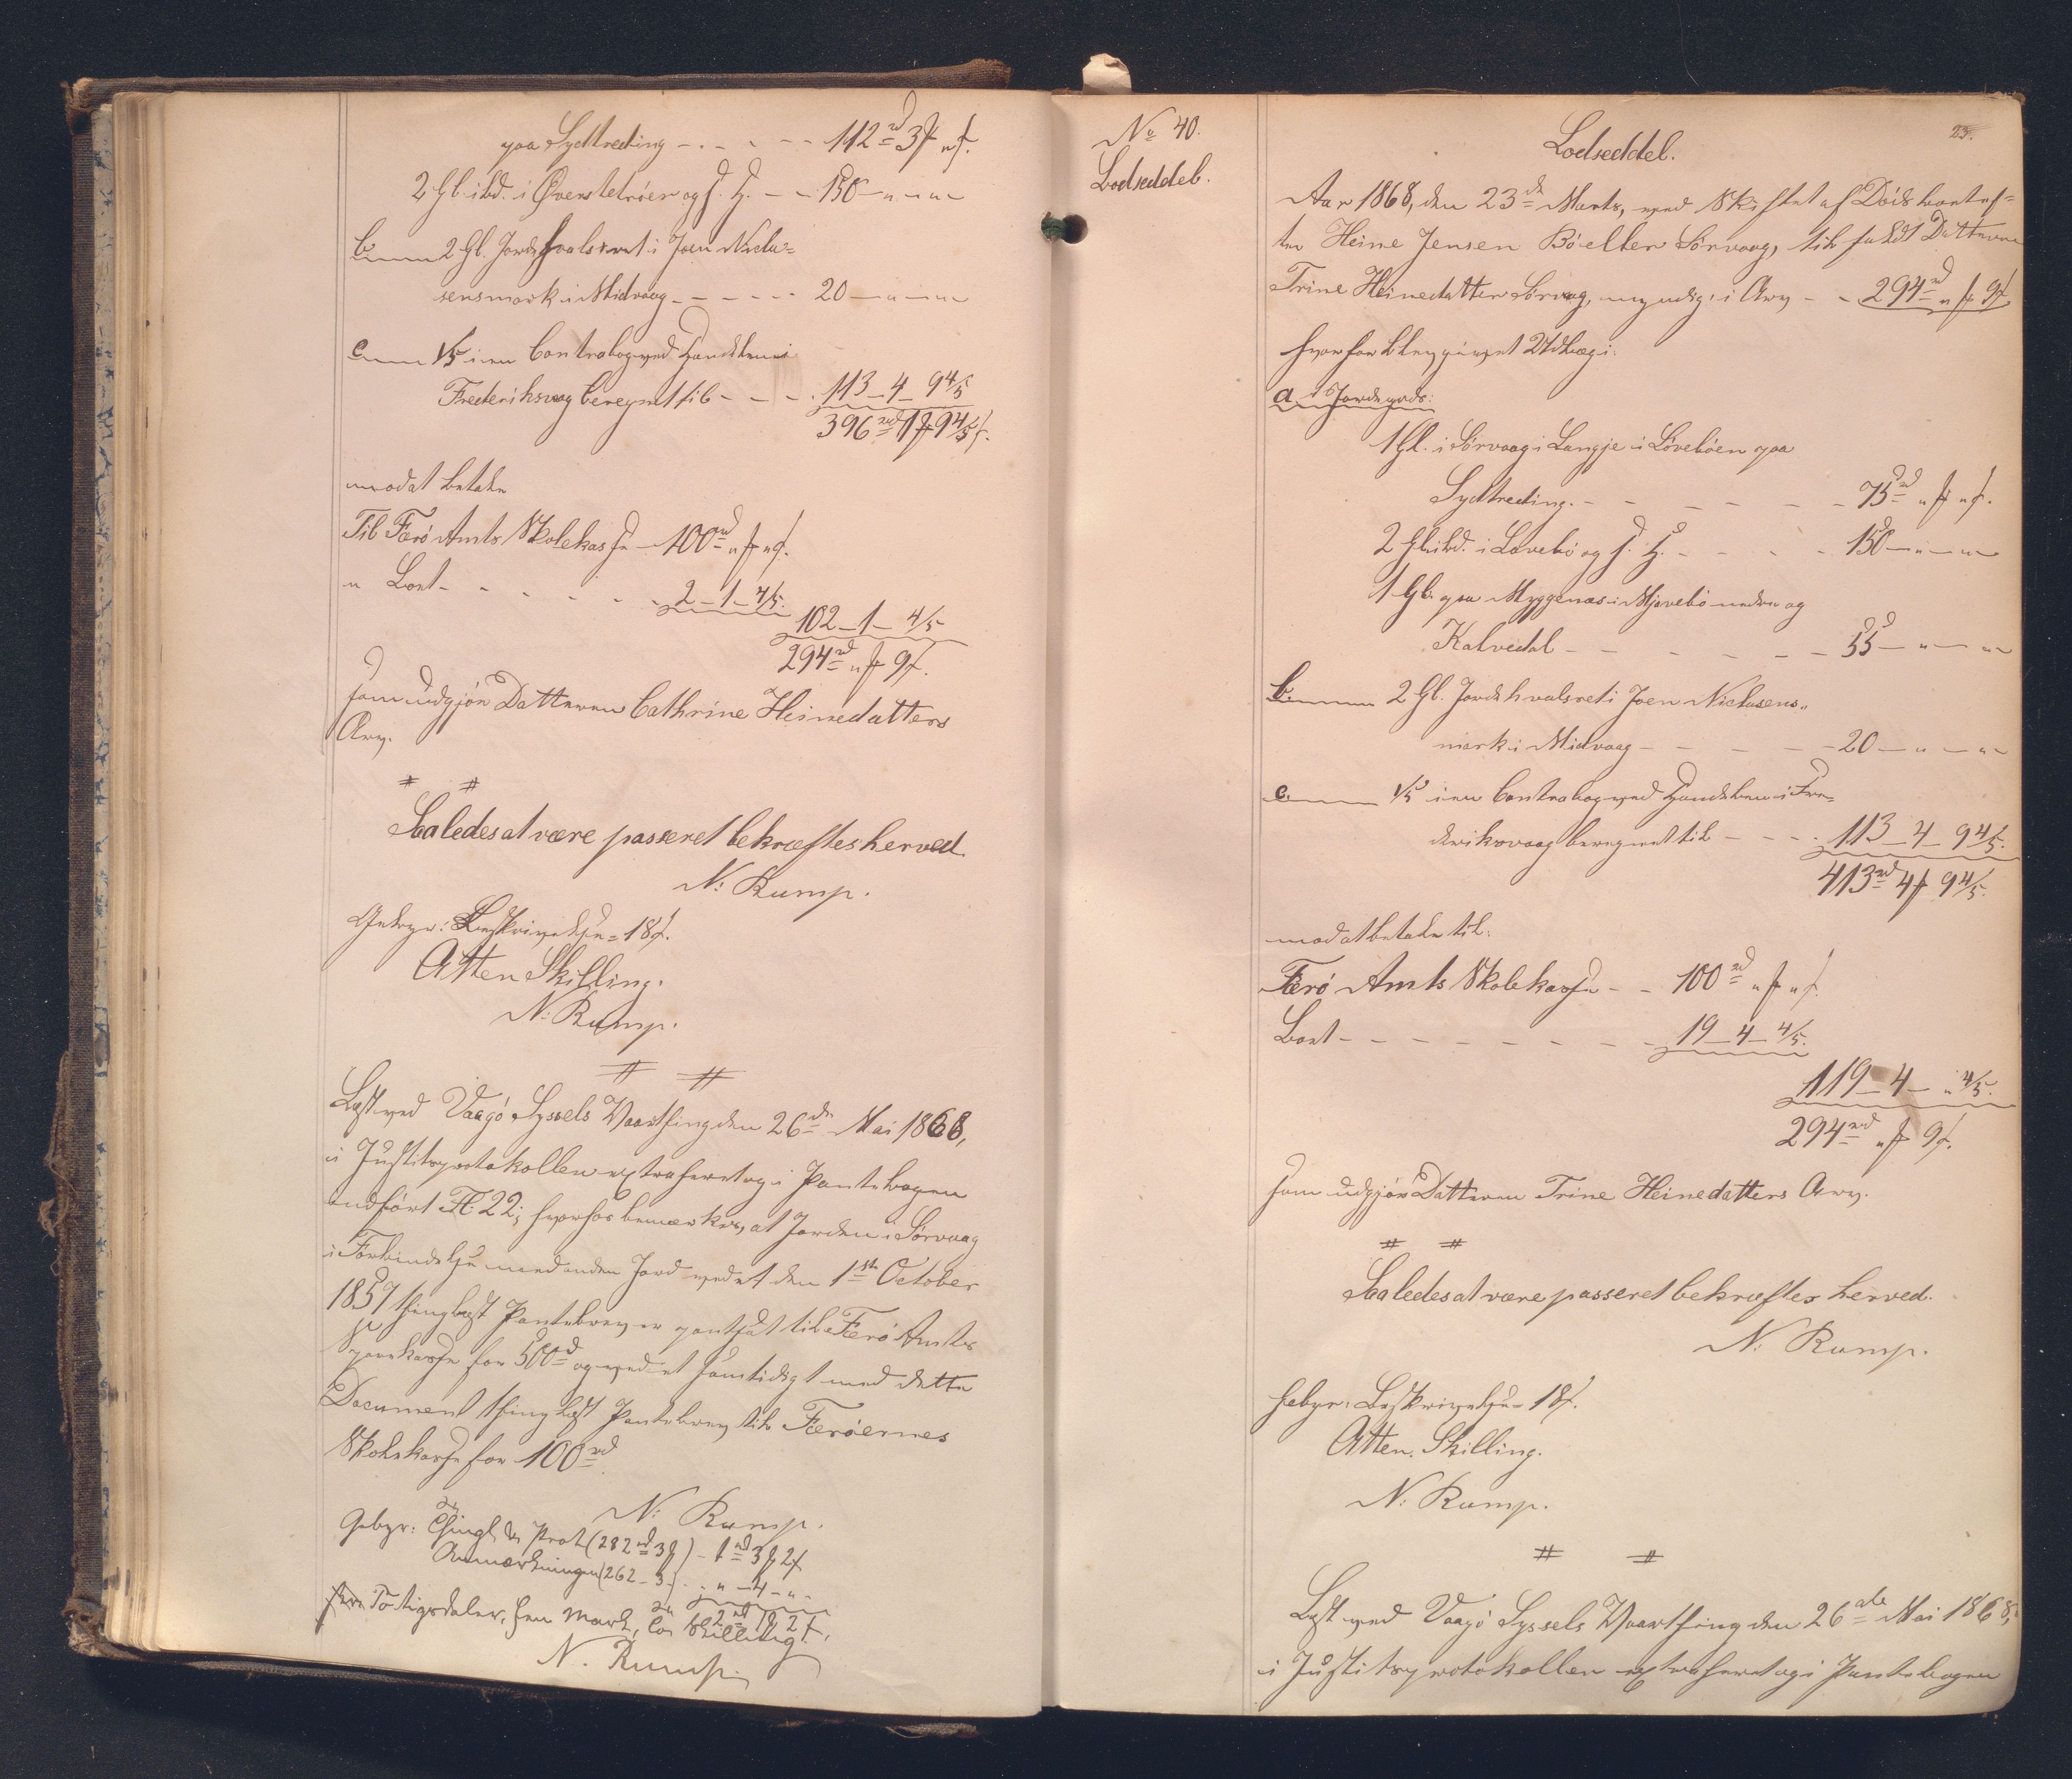 paa Sydtreding - . - - - 112 rd 3 ℳ „ ß.
2 Gl. ibd. i Øverstetröer og f. H. - - 150 — „ — „ —
b. 2 Gl. Jordehvalsret i Joen Nicla=
sensmark i Midvaag - - - - - 20 — „ — „ —
c. 1/5 i en Contrabog ved Handelen i
Frederiksvaag beregnet til - - - . 113 - 4 - 9 4/5
396 rd 1 ℳ 9 4/5 ß.
mod at betale
Til Færö Amts Skolekasse - 100 rd „ ℳ „ ß.
„ Boet - - - - - - 2 - 1 - 4/5.
102 - 1 - 4/5
294 rd „ ℳ 9 ß.
som udgjör Datteren Cathrine Heinedatters
Arv.
# #
Saaledes at være passeret bekræftes herved.
N: Rump.
Gebyr: Beskrivelse = 18 ß.
Atten Skilling.
N: Rump.
# #
Læst ved Vaagö Syssels Vaarthing den 26de Mai 1868,
i Justitsprotokollen extraheret og i Pantebogen
indfört Fl: 22; hvorhos bemærkes, at Jorden i Sörvaag
i Forbindelse med anden Jord ved et den 1ste October
1857 thinglæst Pantebrev er pantsat til Færö Amts
Sparekasse for 500 rd og ved et samtidigt med dette
Document thinglæst Pantebrev til Færöernes
Skolekasse for 100 rd
N: Rump.
Gebyr: Thingl. & Prot (282 rd 3 ℳ) - 1 rd 3 ℳ 2 ß
Anmærkningen (262 - 3 -) - „ - 4 - „ -
2 rd 1 ℳ 2 ß.
To Rigsdaler, een Mark, to Skilling.
N. Rump.
No 40.
Lodseddel.
23.
Lodseddel.
Aar 1868, den 23de Marts, ved Skiftet af Dödsboet ef=
ter Heine Jensen Böellen Sörvaag, tilfaldt Datteren
Trine Heinedatter Sörvaag, myndig, i Arv - - 294 rd „ ℳ 9 ß
hvorfor blev gjivet Udlæg i:
a. i Jordegods:
1 Gl. i Sörvaag i Langje i Löveböen paa
Sydtreding. - - - - - - 75 rd „ ℳ „ ß.
2 Gl. ibd. i Lövebö og f. H. - - - - 150 — „ — „ —
1 Gl. paa Myggenæs i Mjavebö nedre og
Kalvedal - - - - - - 55 — „ — „ —
b. 2 Gl. Jordehvalsret i Joen Niclasens„
mark i Midvaag - - - - - 20 — „ — „ —
c. 1/5 i en Contrabog ved Handelen i Fre=
deriksvaag beregnet til - - - - 113 - 4 - 9 4/5.
413 rd 4 ℳ 9 4/5.
mod at betale til:
Færö Amts Skolekasse - - 100 rd „ ℳ „ ß.
Boet - - - - - - - - 19 - 4 - 4/5.
119 - 4 - „ 4/5.
294 rd „ ℳ 9 ß.
som udgjör Datteren Trine Heinedatters Arv.
# #
Saaledes at være passeret bekræftes herved.
N: Rump.
Gebyr: Beskrivelse = 18 ß.
Atten Skilling.
N: Rump.
# #
Læst ved Vaagö Syssels Vaarthing den 26de Mai 1868,
i Justitsprotokollen extraheret og i Pantebogen